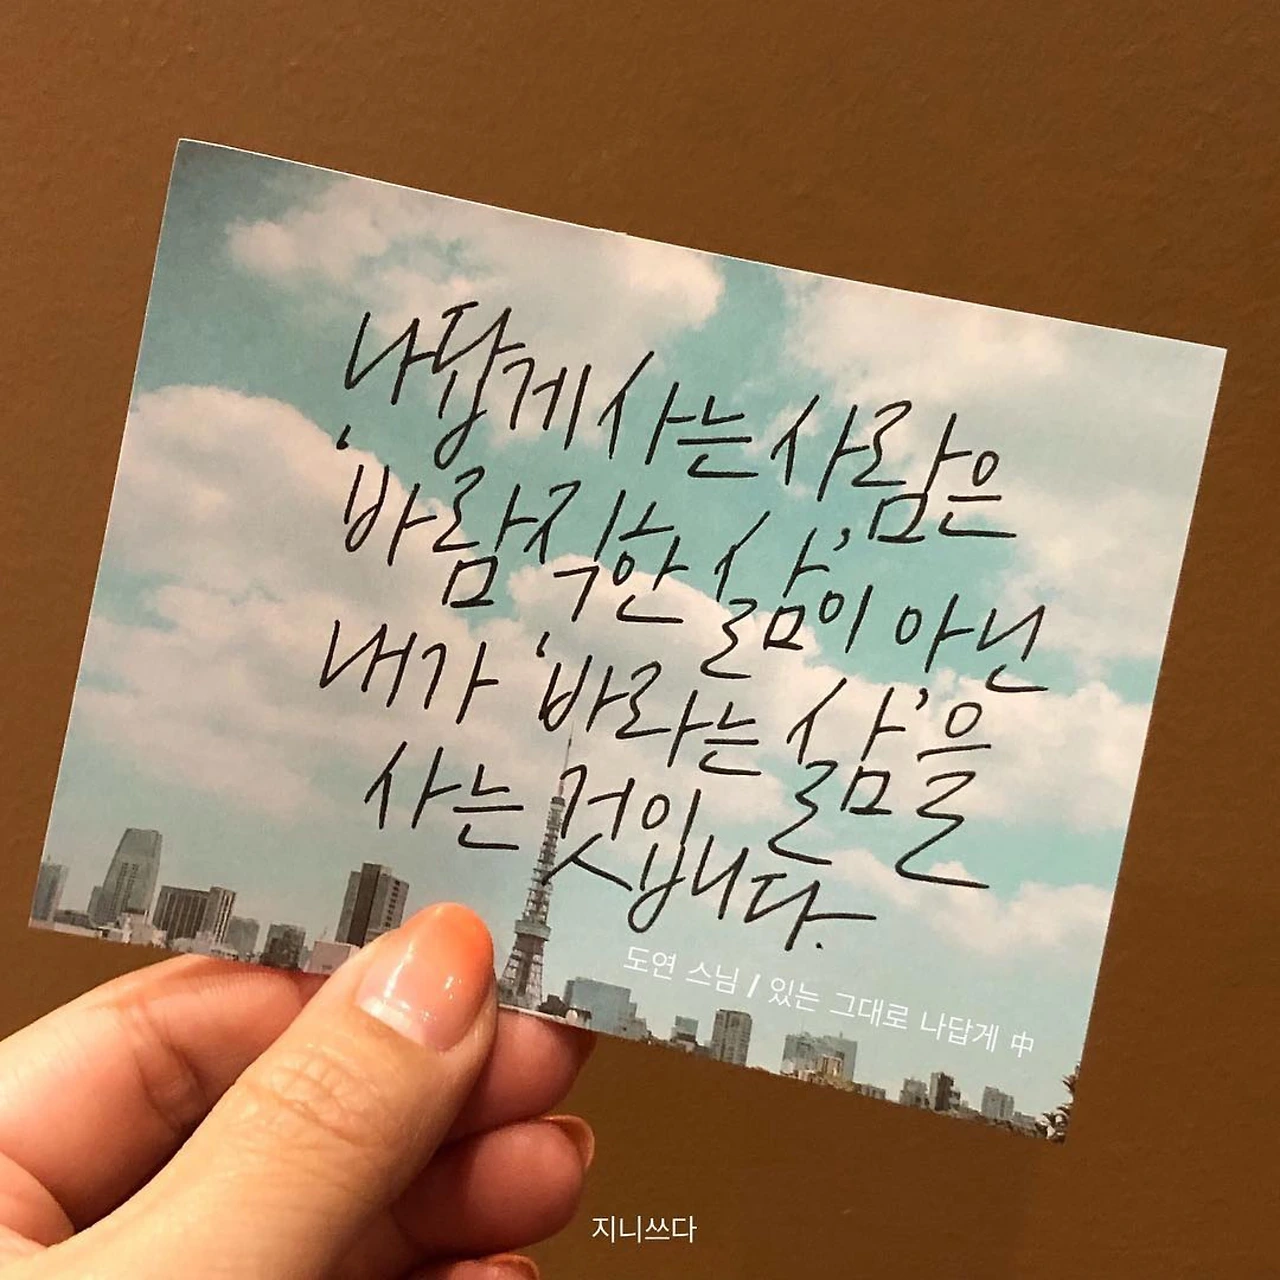 나답게 사는 사람은
'바람직한 삶'이 아닌
내가 '바라는 삶'을
사는 것입니다.
도연 스님 / 있는 그대로 나답게 中
지니쓰다